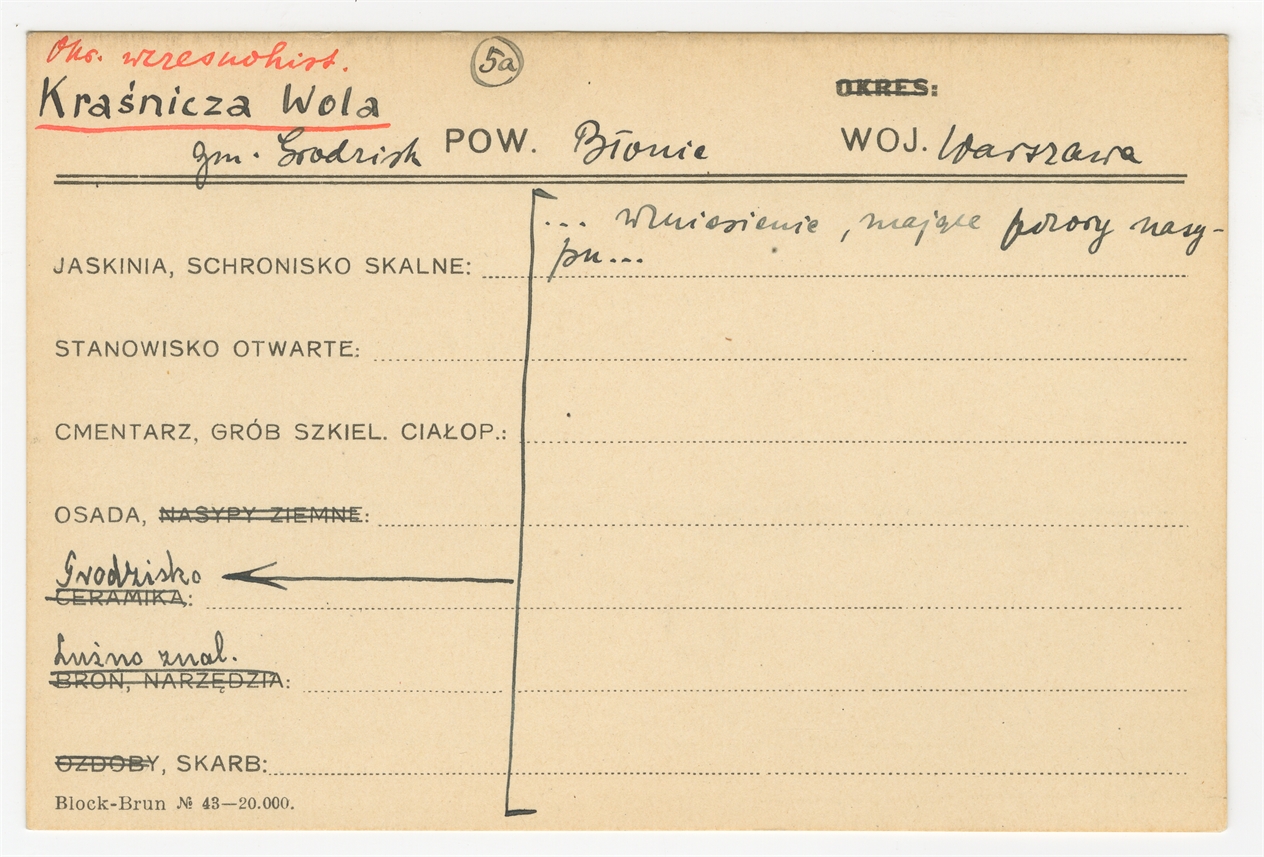 Okr. wczesnohist.
5a
Kraśnicza Wola
OKRES:
gm. Grodzisk POW. Błonie WOJ. Warszawa
... wzniesienie, mające pozory nasy-
pu...
JASKINIA, SCHRONISKO SKALNE:
STANOWISKO OTWARTE:
CMENTARZ, GRÓB SZKIEL. CIAŁOP.:
OSADA, NASYPY ZIEMNE:
Grodzisko
CERAMIKA:
Luźno znal.
BROŃ, NARZĘDZIA:
OZDOBY, SKARB:
Block-Brun № 43—20.000.